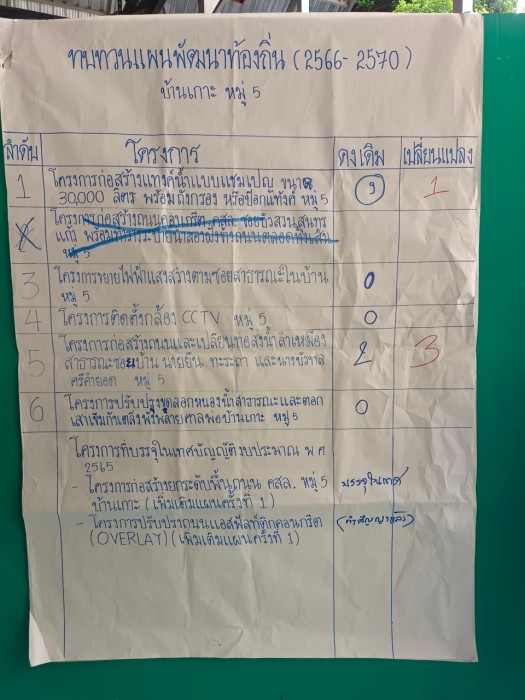 ทบทวนแผนพัฒนาท้องถิ่น (2566-2570)
บ้านเกาะ หมู่ 5
ลำดับ โครงการ คงเดิม เปลี่ยนแปลง
1 โครงการก่อสร้างแทงค์น้ำแบบแชมเปญ ขนาด 3 1
30,000 ลิตร พร้อมถังกรอง หรือป๊อกแท้งค์ หมู่ 5
โครงการก่อสร้างถนนคอนกรีต คสล. ซอยบัวสวนสุนทร
แก้ว พร้อมท่อระบายน้ำสองฝั่งถนนตลอดทั้งเส้น
หมู่ 5
3 โครงการขยายไฟฟ้าแสงสว่างตามซอยสาธารณะในบ้าน 0
หมู่ 5
4 โครงการติดตั้งกล้อง CCTV หมู่ 5 0
5 โครงการก่อสร้างถนนและเปลี่ยนท่อส่งน้ำลำเหมือง 2 3
สาธารณะซอยบ้าน นายยืน ทะระถา และนางบัวทาศ
ศรีคำยอด หมู่ 5
6 โครงการปรับปรุงขุดลอกหนองน้ำสาธารณะและตอก 0
เสาเข็มกันตลิ่งพังหลายศาลพ่อบ้านเกาะ หมู่ 5
โครงการที่บรรจุในเทศบัญญัติงบประมาณ พ.ศ
2565
- โครงการก่อสร้างยกระดับพื้นถนน คสล. หมู่ 5
บ้านเกาะ (เพิ่มเติมแผนครั้งที่ 1)
- โครงการปรับปรุงถนนแอสฟัลท์ติกคอนกรีต
(OVERLAY) (เพิ่มเติมแผนครั้งที่ 1)